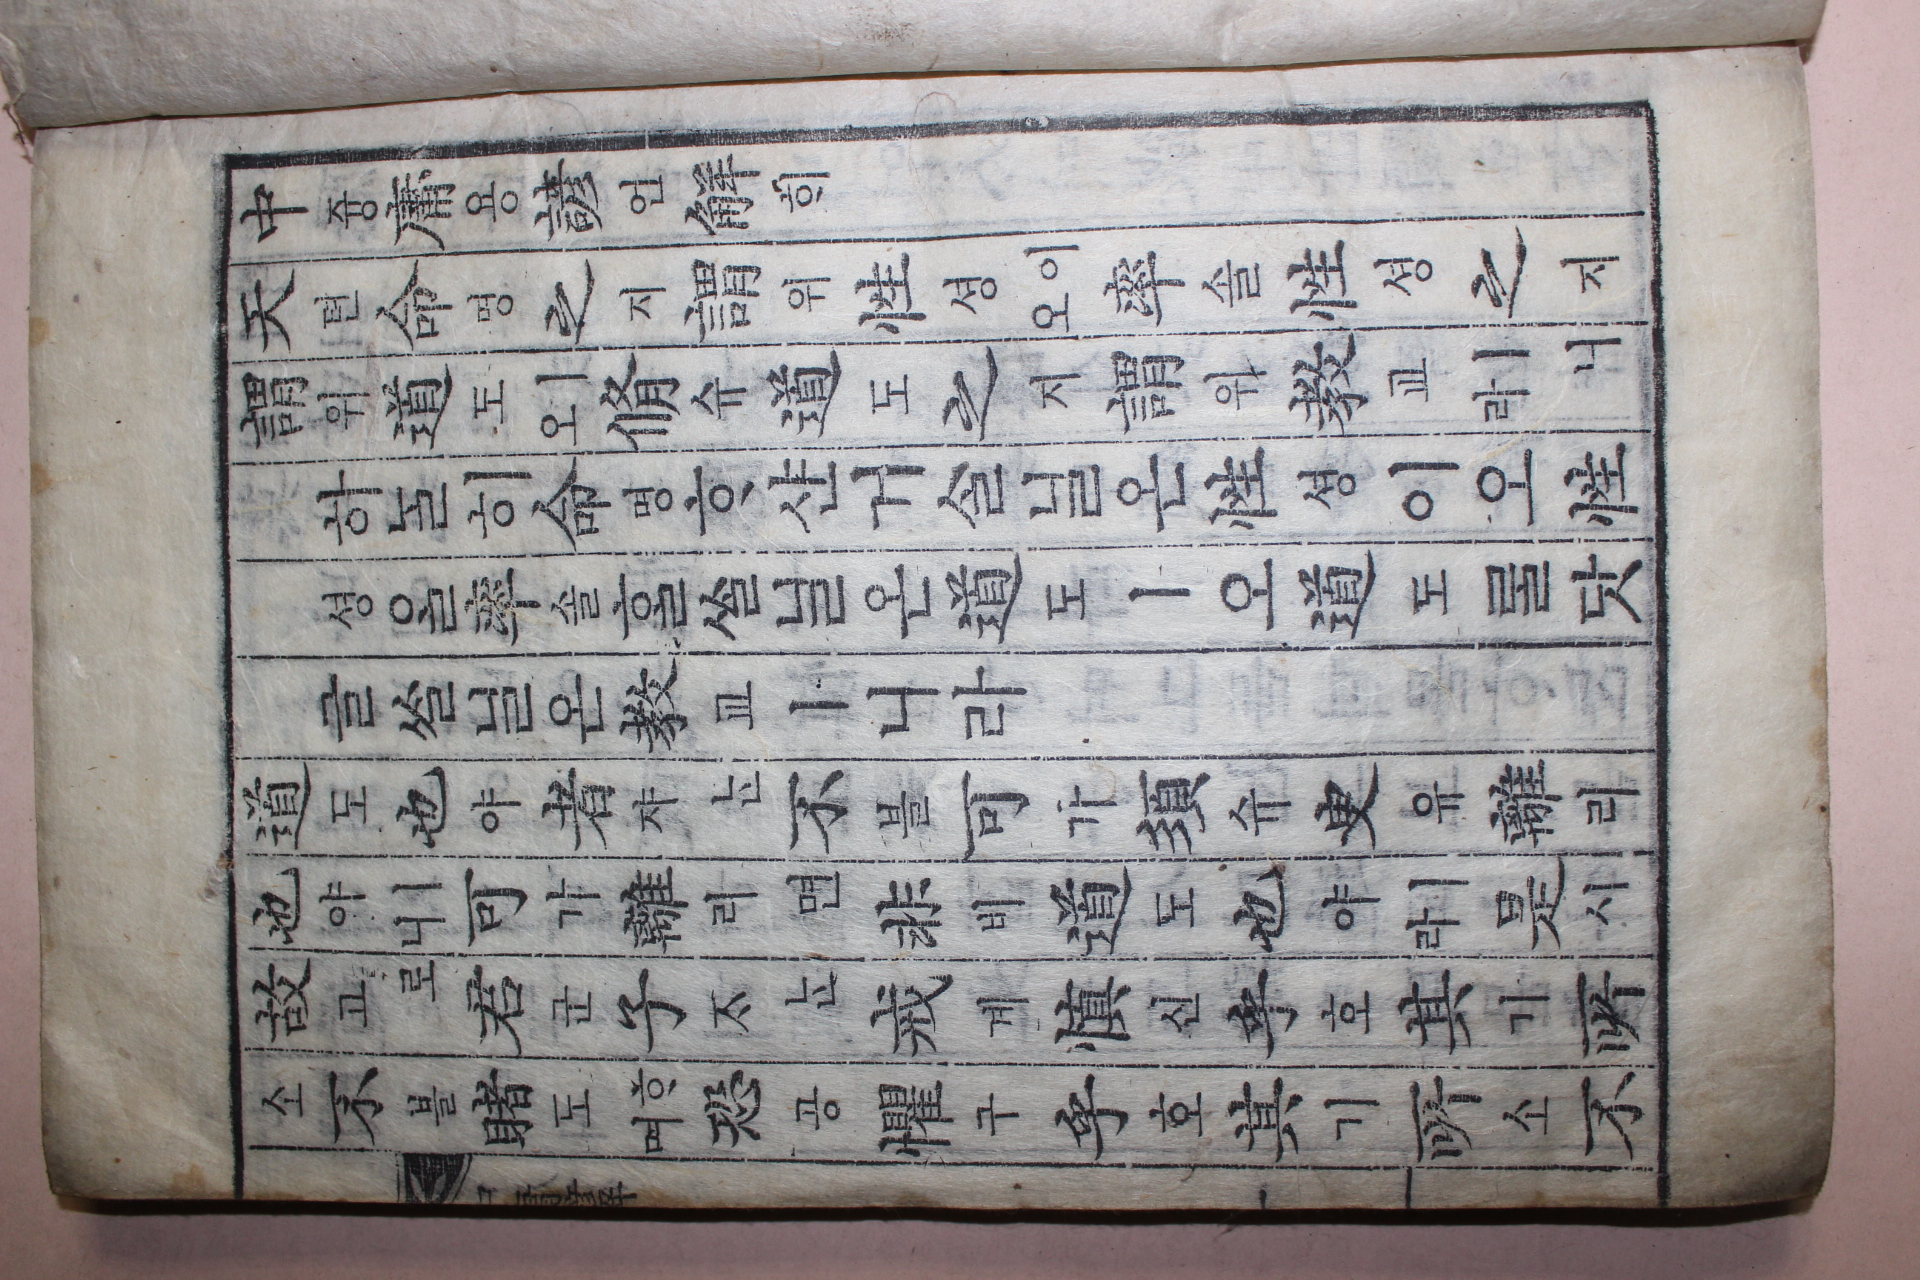 中듕庸용諺언解ᄒᆡ
天텬命명之지謂위性셩이오率솔性셩之지
謂위道도ㅣ오脩슈道도之지謂위敎교ㅣ니라
하ᄂᆞᆯ히命명ᄒᆞ샨거슬닐온性셩이오性
셩을率솔ᄒᆞᆯ쓸닐온道도ㅣ오道도를닷
글쓸닐온敎교ㅣ니라
道도也야者쟈ᄂᆞᆫ不블可가須슈臾유離리
也야ㅣ니可가離리면非비道도也야ㅣ라是시
故고로君군子ᄌᆞᄂᆞᆫ戒계愼신乎호其기所
소不블睹도ᄒᆞ며恐공懼구乎호其기所소不